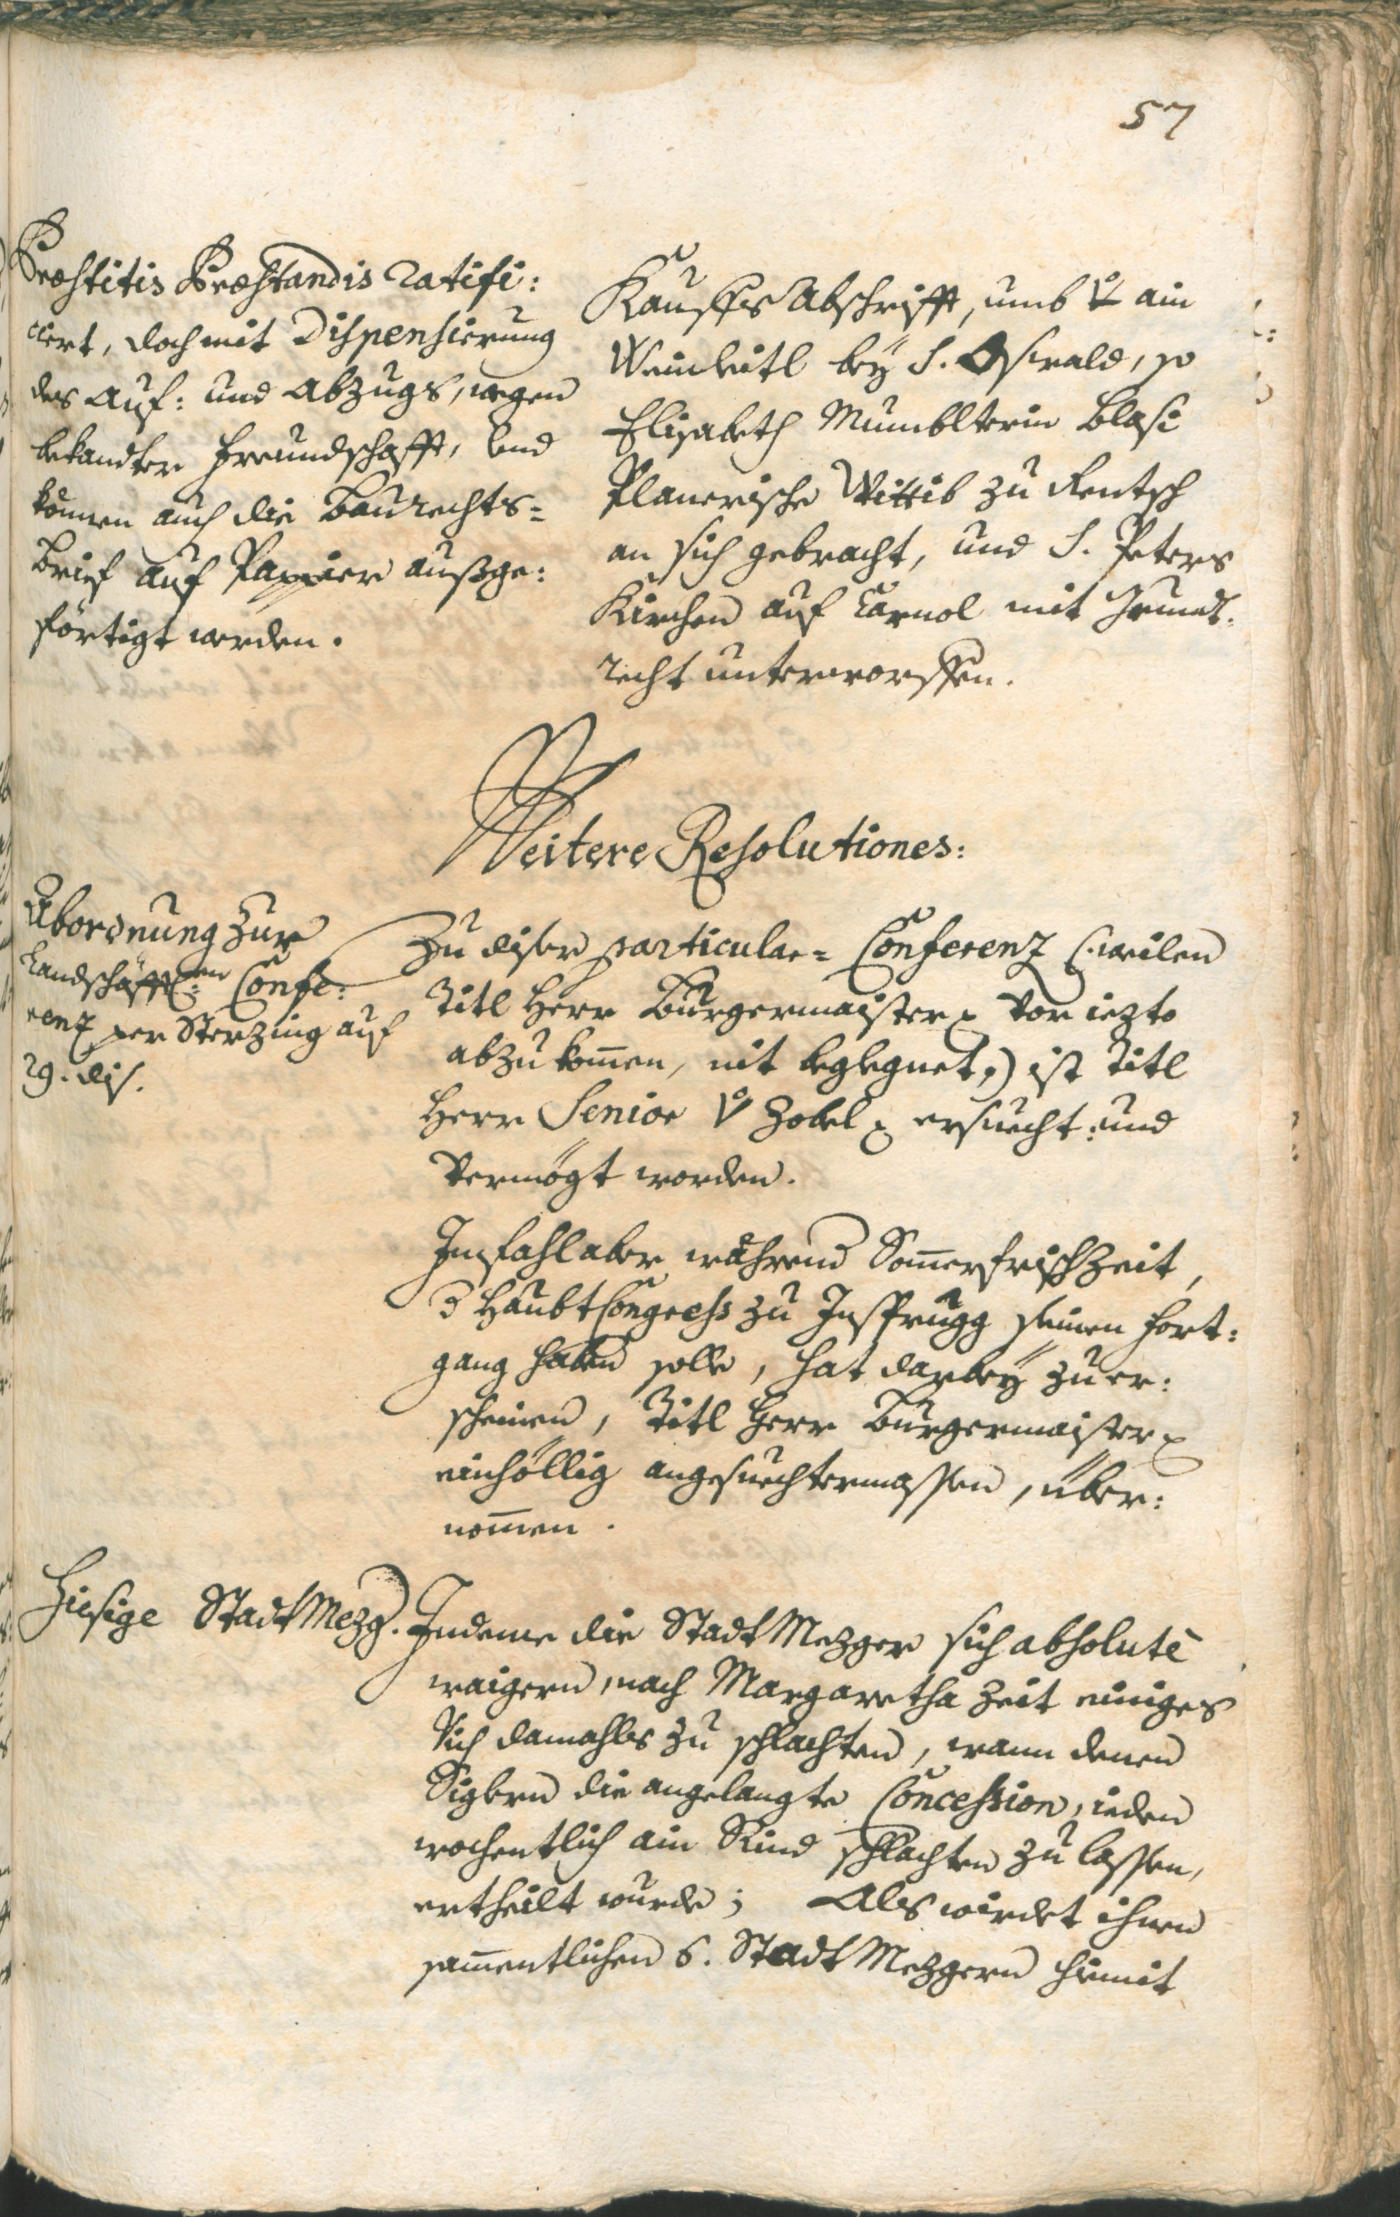 57
Præstitis Præstandis ratifi:
ciert, doch mit Dispensierung
des Auf: und Abzugs, wegen
bekandter Freundschafft, und
können auch die Baurechts=
Brief auf Pappier außge:
förtigt werden.
Kauffs Abschrifft, umb ain
Weinleitl bey S. Oswald, so
Elisabeth Mumblterin Blasi
Planerische Wittib zu Rentsch
an sich gebracht, und S. Peters
Kirchen auf Karnol mit Grundt:
recht unterworffen.
Weitere Resolutiones:
Abordnung zur
Landschäfftl:en Confe:
renz per Sterzing auf
29. dis.
Zu diser particular= Conferenz (weilen
Titl Herr Burgermaister vor iezto
abzukom̄en, nit beglegnet,) ist Titl
Herr Senior v Zobel ersuecht: und
vermögt worden.
Im fahl aber während Som̄erfrischZeit,
d HaubtCongress zu Insprugg seinen Fort:
gang haben solle, hat darbey zu er:
scheinen, Titl Herr Burgermaister
einhöllig angesuechtermassen, über:
nom̄en.
Hiesige StadtMezg.
Indeme die StadtMezger sich absolutè
waigern, nach Margaretha Zeit einiges
Vich damahls zu schlachten, wann denen
Siglern die angelangte Concession, ieden
wochentlich ain Rind schlachten zu lassen,
ertheilt wurde; Als wirdet ihnen
sam̄entlichen 6. StadtMezgern hiemit